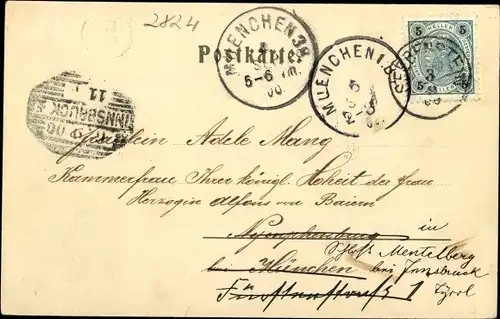 2824
Postkarte
MUENCHEN 38
5-6 Nm.
00.
MUENCHEN 1. B.P.
5
5
HELLER
EBENSEE
3
INNSBRUCK
11
00
Fräulein Adele Mang
Kammerfrau Ihrer königl. Hoheit der Frau
Herzogin Alfons von Baiern
Nymphenburg in
Schloß Mentelberg
bei München bei Innsbruck
Fürstenstraße 1 Tyrol